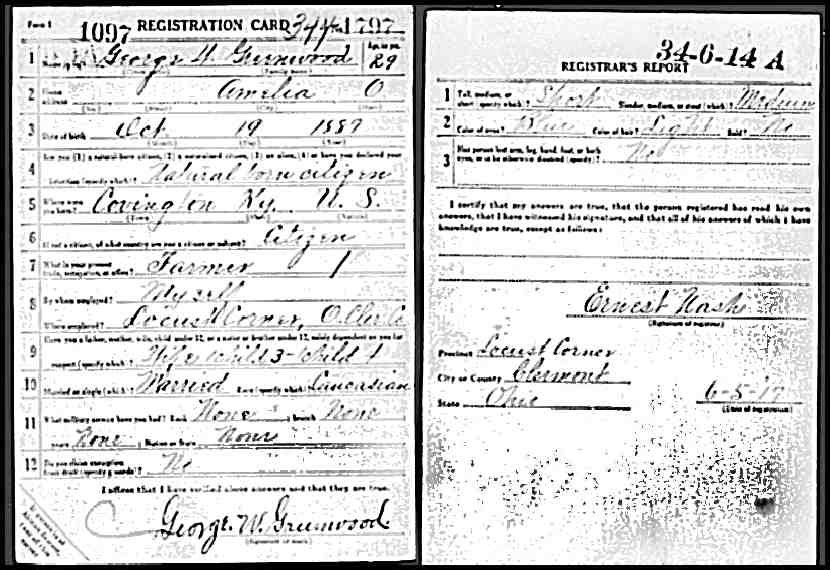 Form 1 1097 REGISTRATION CARD 344 1797
1 George W. Greenwood Age, in yrs. 29
(Family name)
2 Home address Amelia O
(No.) (Street) (City) (State)
3 Date of birth Oct. 19 1887
(Month) (Day) (Year)
4 Are you (1) a natural-born citizen, (2) a naturalized citizen, (3) an alien, (4) or have you declared your
intention (specify which)? Natural born citizen
5 Where were you born? Covington Ky. U. S.
(Town) (State) (Nation)
6 If not a citizen, of what country are you a citizen or subject? Citizen
7 What is your present trade, occupation, or office? Farmer 1
8 By whom employed? My self
Where employed? Locust Corner, O.
9 Have you a father, mother, wife, child under 12, or a sister or brother under 12, solely dependent on you for
support (specify which)? Wife child 3 - child 1
10 Married or single (which)? Married Race (specify which)? Caucasian
11 What military service have you had? Rank None ; branch None
years None ; Nation or State None
12 Do you claim exemption from draft (specify grounds)? No
I affirm that I have verified above answers and that they are true.
George W. Greenwood
(Signature or mark)
34-6-14 A
REGISTRAR'S REPORT
1 Tall, medium, or short (specify which)? Short Slender, medium, or stout (which)? Medium
2 Color of eyes? Blue Color of hair? Light Bald? No
3 Has person lost arm, leg, hand, foot, or both
eyes, or is he otherwise disabled (specify)? No
I certify that my answers are true, that the person registered has read his own
answers, that I have witnessed his signature, and that all of his answers of which I have
knowledge are true, except as follows:
Ernest Nash
(Signature of registrar)
Precinct Locust Corner
City or County Clermont
State Ohio 6-5-17
(Date of registration)